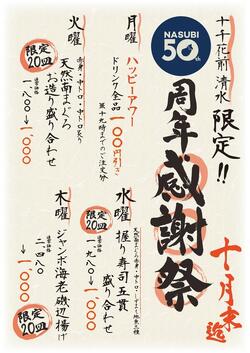 十千花前 清水 限定!!
NASUBI
50th
周年感謝祭
十月末迄
月曜
ハッピーアワー
ドリンク全品一〇〇円引き
※十九時までのご注文分
火曜
赤身・中トロ・中トロ炙り
天然南まぐろ
お造り盛り合わせ
限定20皿
通常価格
一、八〇〇→一、〇〇〇
水曜
握り寿司五貫
盛り合わせ
限定20皿
通常価格
一、九八〇→一、〇〇〇
木曜
ジャンボ海老磯辺揚げ
通常価格
二、四八〇→一、〇〇〇
限定20皿